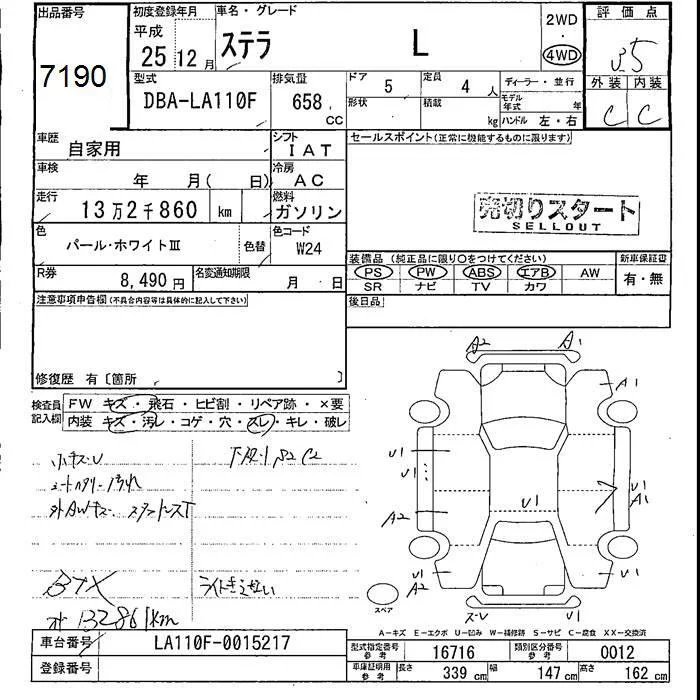 出品番号
7190
初度登録年月
平成
25 12月
車名・グレード
ステラ L
2WD
・
4WD
評価点
3.5
外装 内装
C C
型式
DBA-LA110F
排気量
658 CC
ドア
5
定員
4 人
形状
積載
kg
ディーラー・並行
モデル年式 年
ハンドル 左・右
車歴
自家用
シフト
IAT
車検
年 月( 日)
冷房
AC
走行
13万2千860 km
燃料
ガソリン
色
パール・ホワイトⅢ
色替
色コード
W24
R券
8,490円
名変通知期限
月 日
セールスポイント(正常に機能するものに限ります)
売切りスタート
SELLOUT
装備品 (純正品に限り○をつけてください)
PS PW ABS エアB AW
SR ナビ TV カワ
新車保証書
有・無
後日品
注意事項申告欄(不具合内容等は具体的に記入して下さい)
修復歴 有〔箇所 〕
検査員記入欄
FW キズ・飛石・ヒビ割・リペア跡・×要
内装 キズ・汚レ・コゲ・穴・スレ・キレ・破レ
小キズ・U
下廻りS2 C2
シートハタリ・汚れ
外AWキズ・スタッドレスT
BTX
ライトきえない
オ 132861km
A2 A1
A1
U1
U1
A2
U1
U1
A1
U1
A2
U1
ズ・U U1
スペア
A−キズ E−エクボ U−凹み W−補修跡 S−サビ C−腐食 XX−交換済
車台番号
LA110F-0015217
登録番号
型式指定番号
参考
16716
類別区分番号
参考
0012
車庫証明用
参考
長さ 339 cm
幅 147 cm
高さ 162 cm